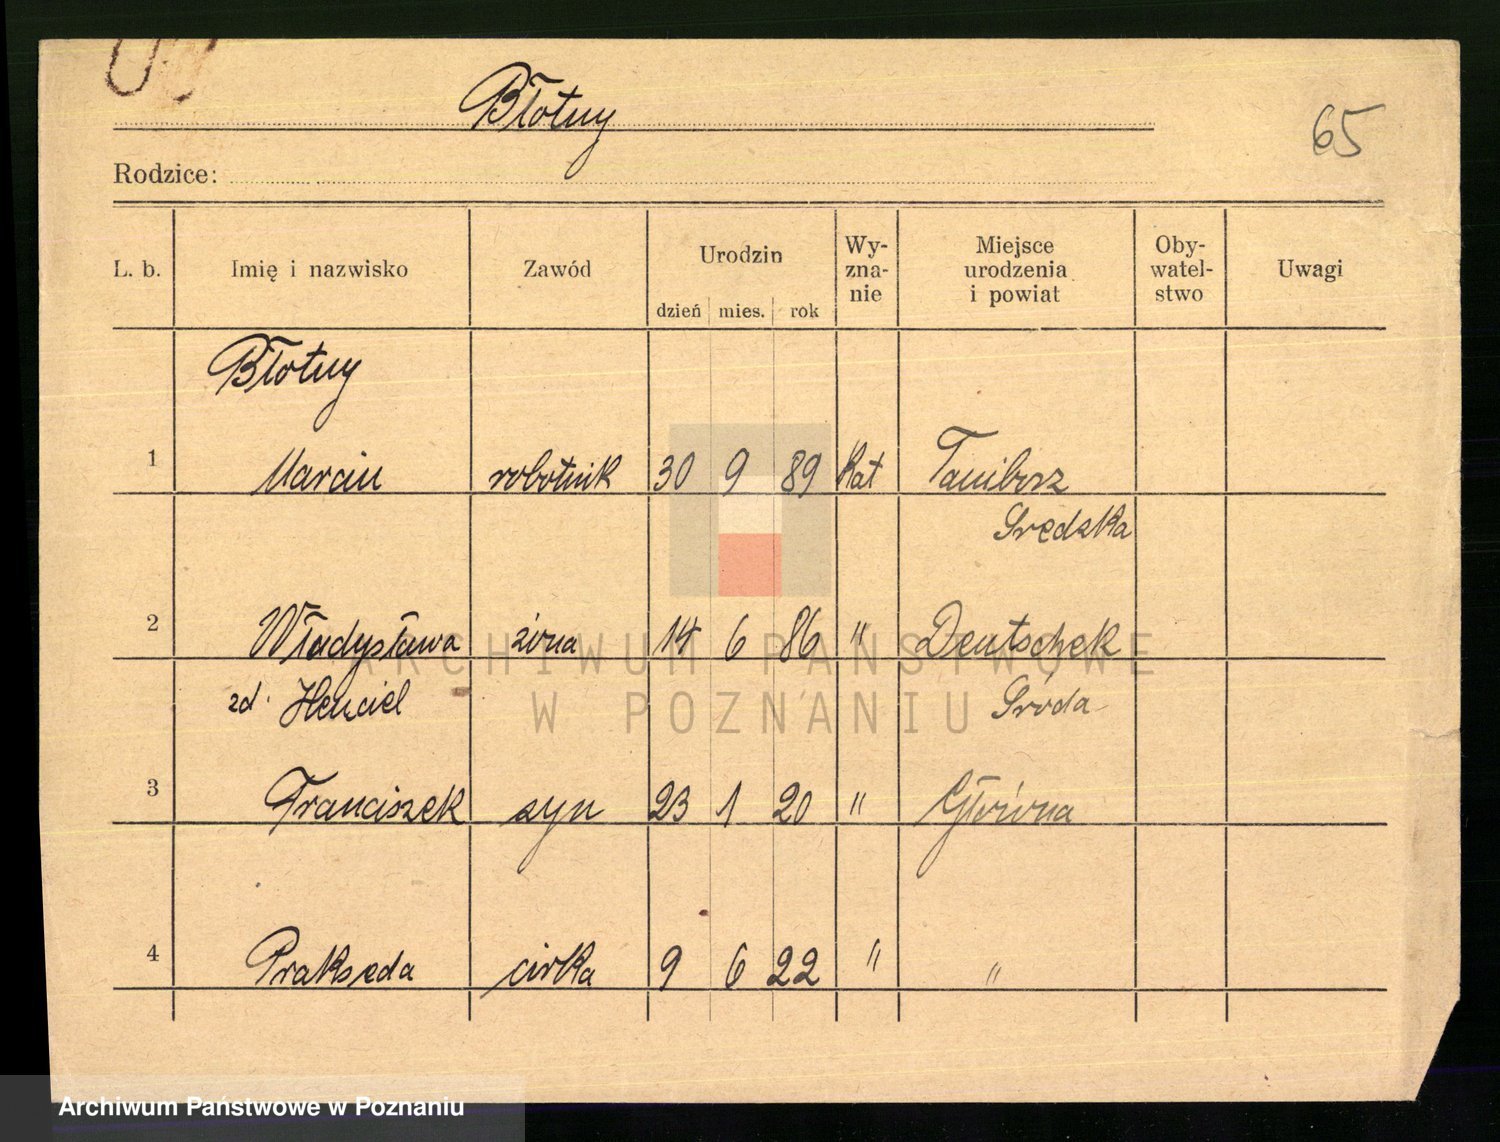 Błotny
65
Rodzice:
L. b. Imię i nazwisko Zawód Urodzin dzień mies. rok Wy-zna-nie Miejsce urodzenia i powiat Oby-watel-stwo Uwagi
Błotny
1 Marcin robotnik 30 9 89 kat
Sredzka
2 Władysława żona 14 6 86 " Deutschek
zd. Henciel Sroda
3 Franciszek syn 23 1 20 " Główna
4 Prakseda córka 9 6 22 " "
ARCHIWUM PAŃSTWOWE
W POZNANIU
Archiwum Państwowe w Poznaniu